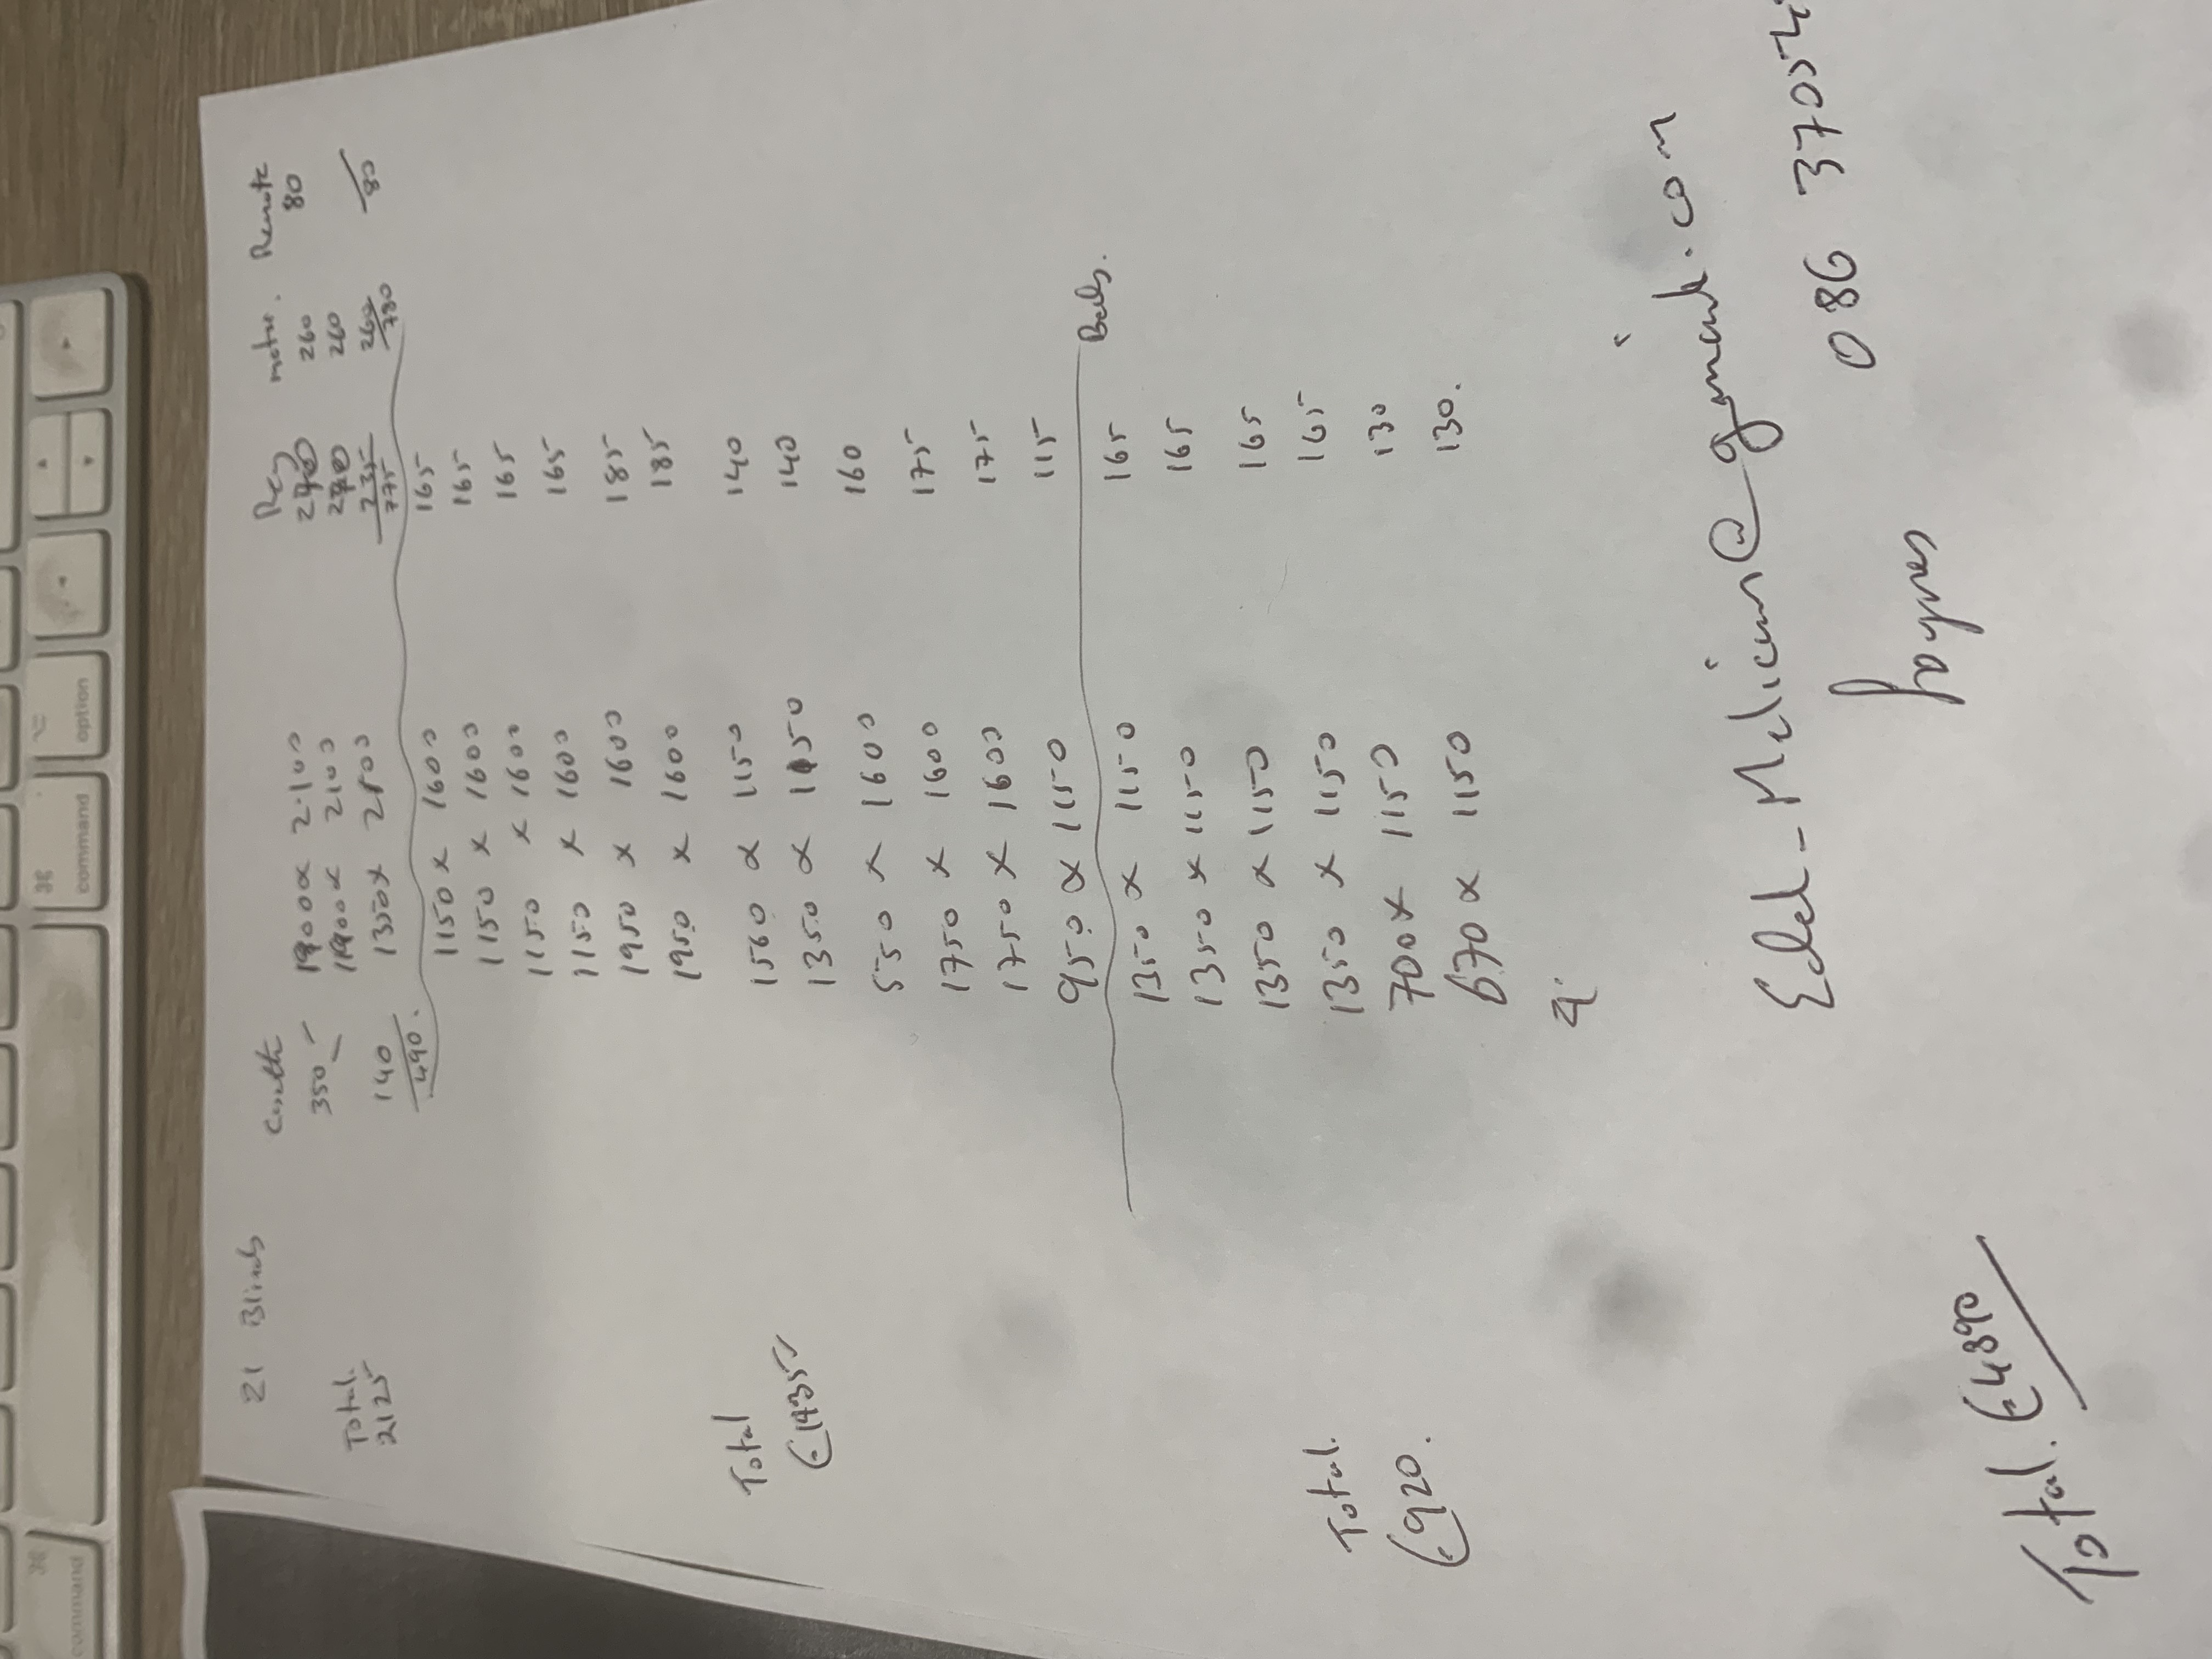 21 Blinds Casette Reg motor. Remote
350 1900 x 2100 270 260 80
1900 x 2100 270 260
Total. 140 1350 x 2100 235 260 80
2125 490. 775 780
1150 x 1600 165
1150 x 1600 165
1150 x 1600 165
1150 x 1600 165
1950 x 1600 185
1950 x 1600 185
Total 1560 x 1150 140
1350 x 1150 140
550 x 1600 160
1750 x 1600 175
1750 x 1600 175
950 x 1150 115
1350 x 1150 165 Beds.
1350 x 1150 165
1350 x 1150 165
Total. 1350 x 1150 165
€920. 700 x 1150 130
670 x 1150 130.
086 3705
Total. €4890
command
option
command